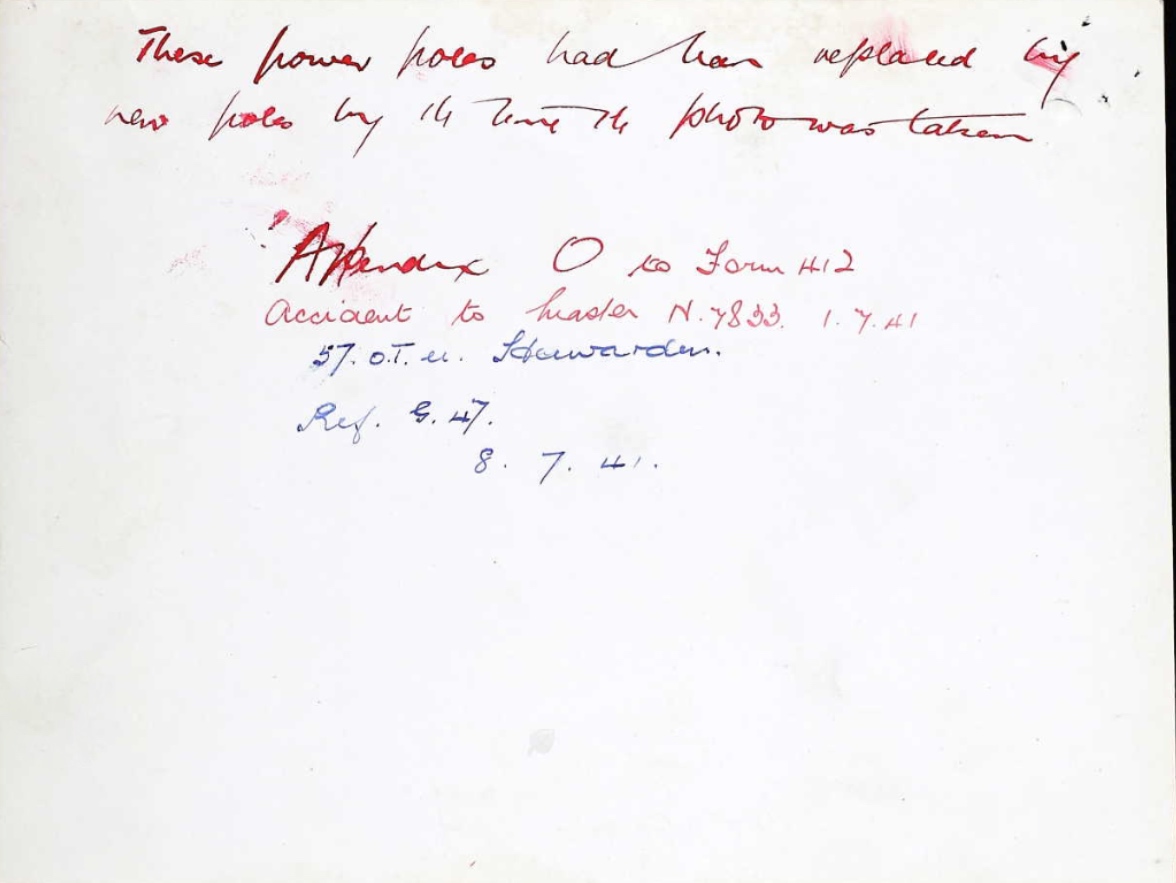 These power poles had been replaced by
new poles by the time the photo was taken
Appendix O to Form 412
Accident to Master N.7833. 1.7.41
57. O.T.U. Hawarden.
Ref. G.47.
8. 7. 41.